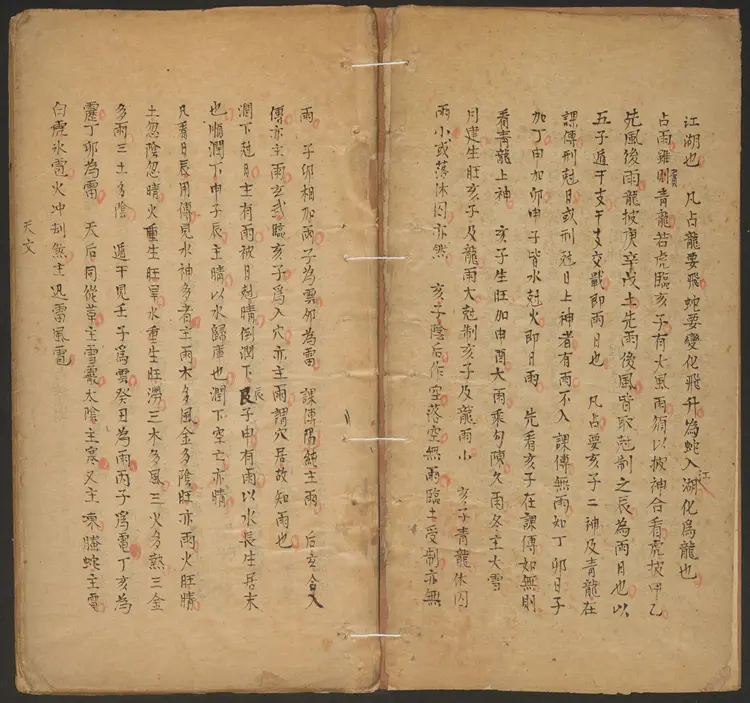 江湖也　凡占龍要飛蛇要變化飛升為蛇入江湖化為龍也
占雨雖則責青龍若虎臨亥子有大風雨須以披神合看虎披甲乙
先風後雨龍披庚辛戊土先雨後風皆取尅制之辰為雨日也以
五子遁干支干支交戰即雨日也　凡占要亥子二神及青龍在
課傳刑尅日或刑尅日上神者有雨不入課傳無雨如丁卯日子
加丁申加卯申子皆水尅火即日雨　先看亥子在課傳如無則
看青龍上神　亥子生旺加申酉大雨乘勾陳久雨冬主大雪
月建生旺亥子及龍雨大尅制亥子及龍雨小　亥子青龍休囚
雨小或落休囚亦然　亥子陰后作空落空無雨臨土受制亦無
雨　子卯相加爲子為雲卯為雷　課傳陽純主雨　后玄合入
傳亦主雨玄武臨亥子爲入穴亦主雨謂穴居故知雨也
潤下尅日主有雨被日尅晴倒潤下辰子申有雨以水長生居末
也順潤下申子辰主晴以水歸庫也潤下空亡亦晴
凡看日辰用傳見水神多者主雨木多風金多陰旺亦雨火旺晴
土忽陰忽晴火重生旺旱水重生旺澇三木多風三火多熱三金
多雨三土多陰　遁干見壬子爲雲癸丑為雨丙子爲電丁亥為
霾丁卯為雷　天后同從革主雪霰太陰主寒又主凍螣蛇主電
白虎氷雹火冲刑煞主迅雷風電
天文